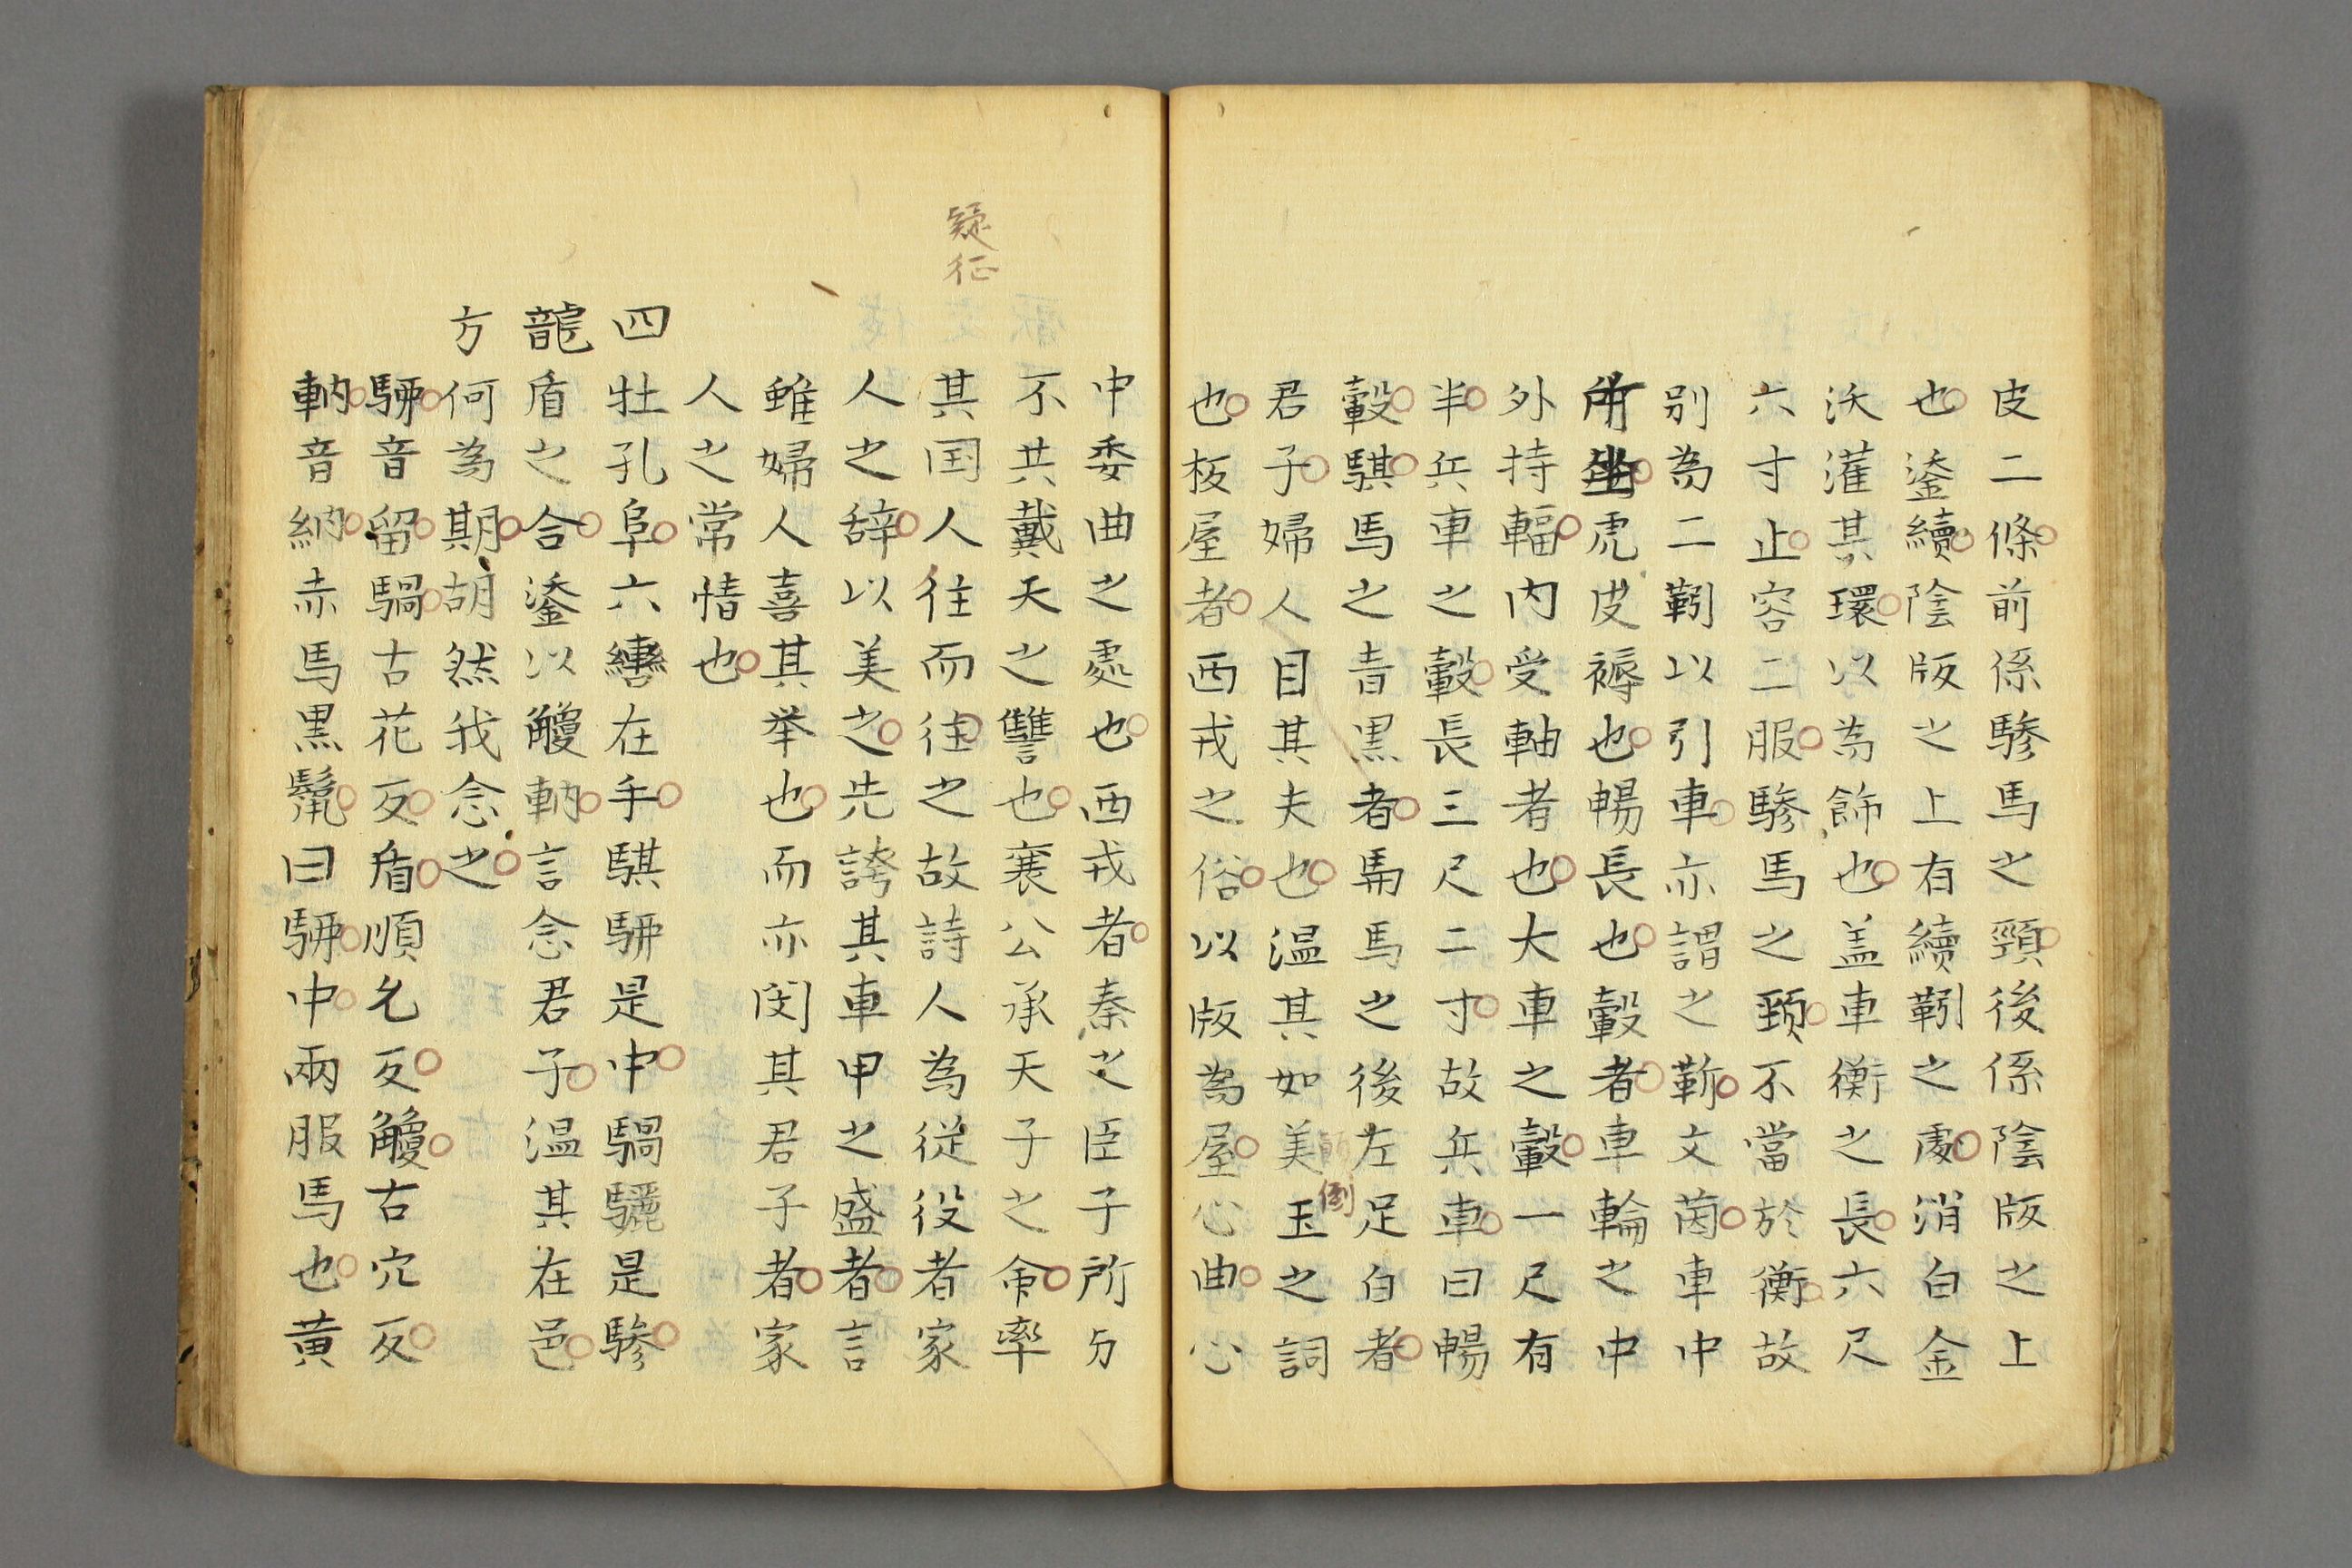 皮二條前係驂馬之頸後係陰版之上
也鋈續陰版之上有續靷之處消白金
沃灌其環以為飾也盖車衡之長六尺
六寸止容二服驂馬之頸不當於衡故
別為二靷以引車亦謂之靳文茵車中
所坐虎皮褥也暢長也轂者車輪之中
外持輻内受軸者也大車之轂一尺有
半兵車之轂長三尺二寸故兵車曰暢
轂騏馬之青黒者馵馬之後左足白者
君子婦人目其夫也温其如美玉之詞
倒
也板屋者西戎之俗以版為屋心曲心
中委曲之處也西戎者秦之臣子所与
不共戴天之讐也襄公承天子之命率
疑征
其国人往而往之故詩人為従役者家
人之辞以美之先誇其車甲之盛者言
雖婦人喜其挙也而亦閔其君子者家
人之常情也
四牡孔阜六轡在手騏駵是中騧驪是驂
龍盾之合鋈以觼軜言念君子温其在邑
方何為期胡然我念之
駵音留騧古花反盾順允反觼古穴反
軜音納赤馬黒鬣曰駵中兩服馬也黄